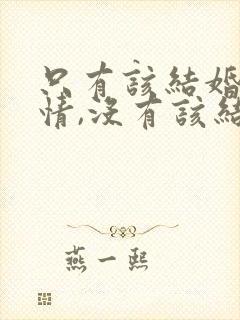 只有該結婚
情,沒有該結
燕一熙